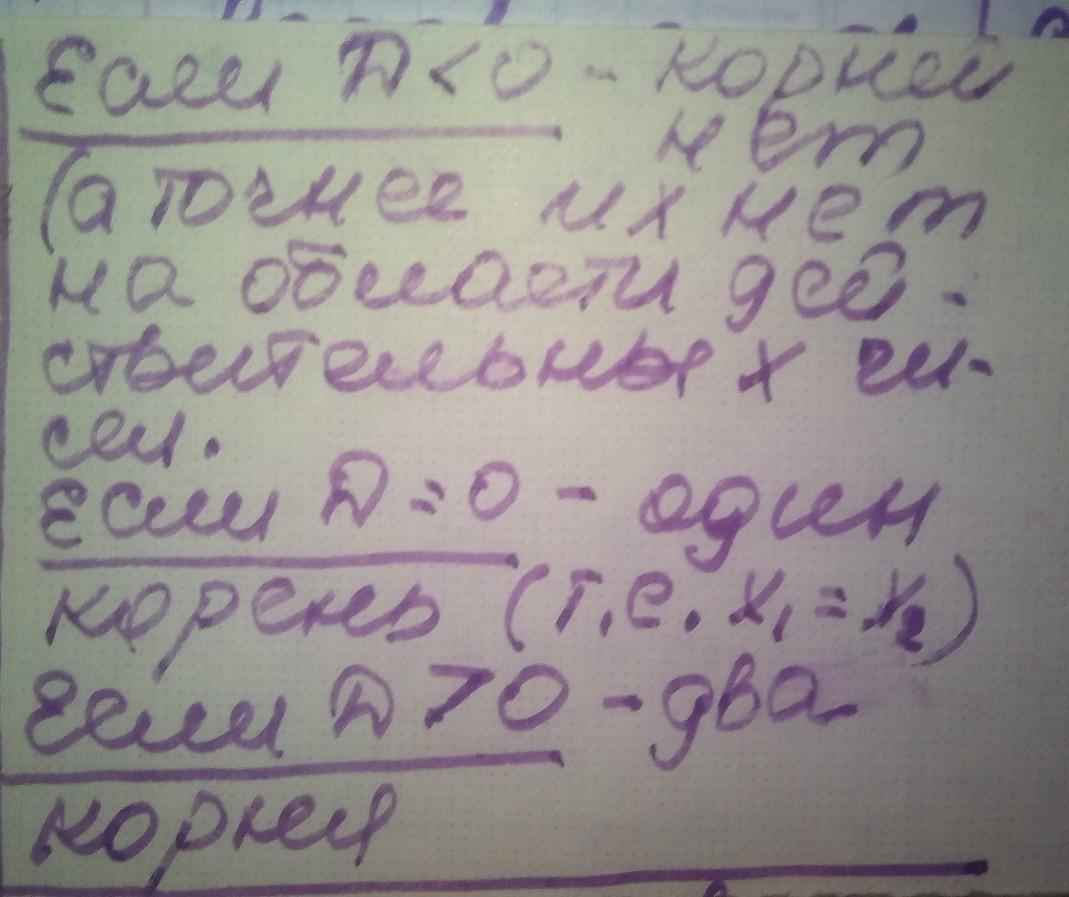 Если D<0 - корней
нет
(а точнее их нет
на области дей-
ствительных чи-
сел.
Если D=0 - один
корень (т.е. x₁=x₂)
Если D>0 - два
корня